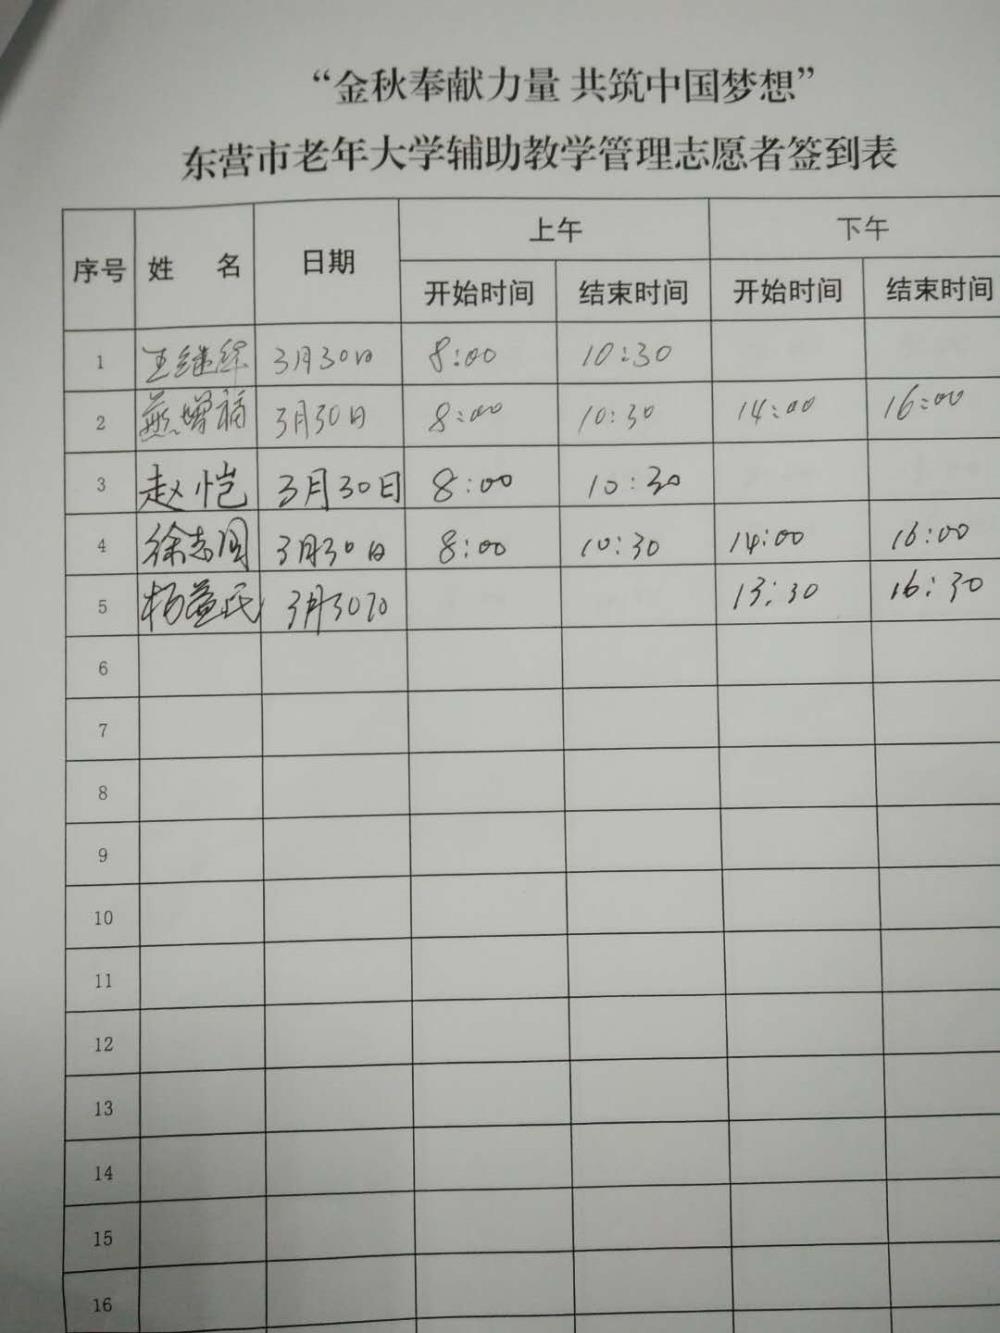 “金秋奉献力量 共筑中国梦想”
东营市老年大学辅助教学管理志愿者签到表
序号 姓 名 日期 上午 下午
开始时间 结束时间 开始时间 结束时间
1 王继华 3月30日 8:00 10:30
2 燕增福 3月30日 8:00 10:30 14:00 16:00
3 赵恺 3月30日 8:00 10:30
4 徐志国 3月30日 8:00 10:30 14:00 16:00
5 杨益民 3月30日 13:30 16:30
6
7
8
9
10
11
12
13
14
15
16